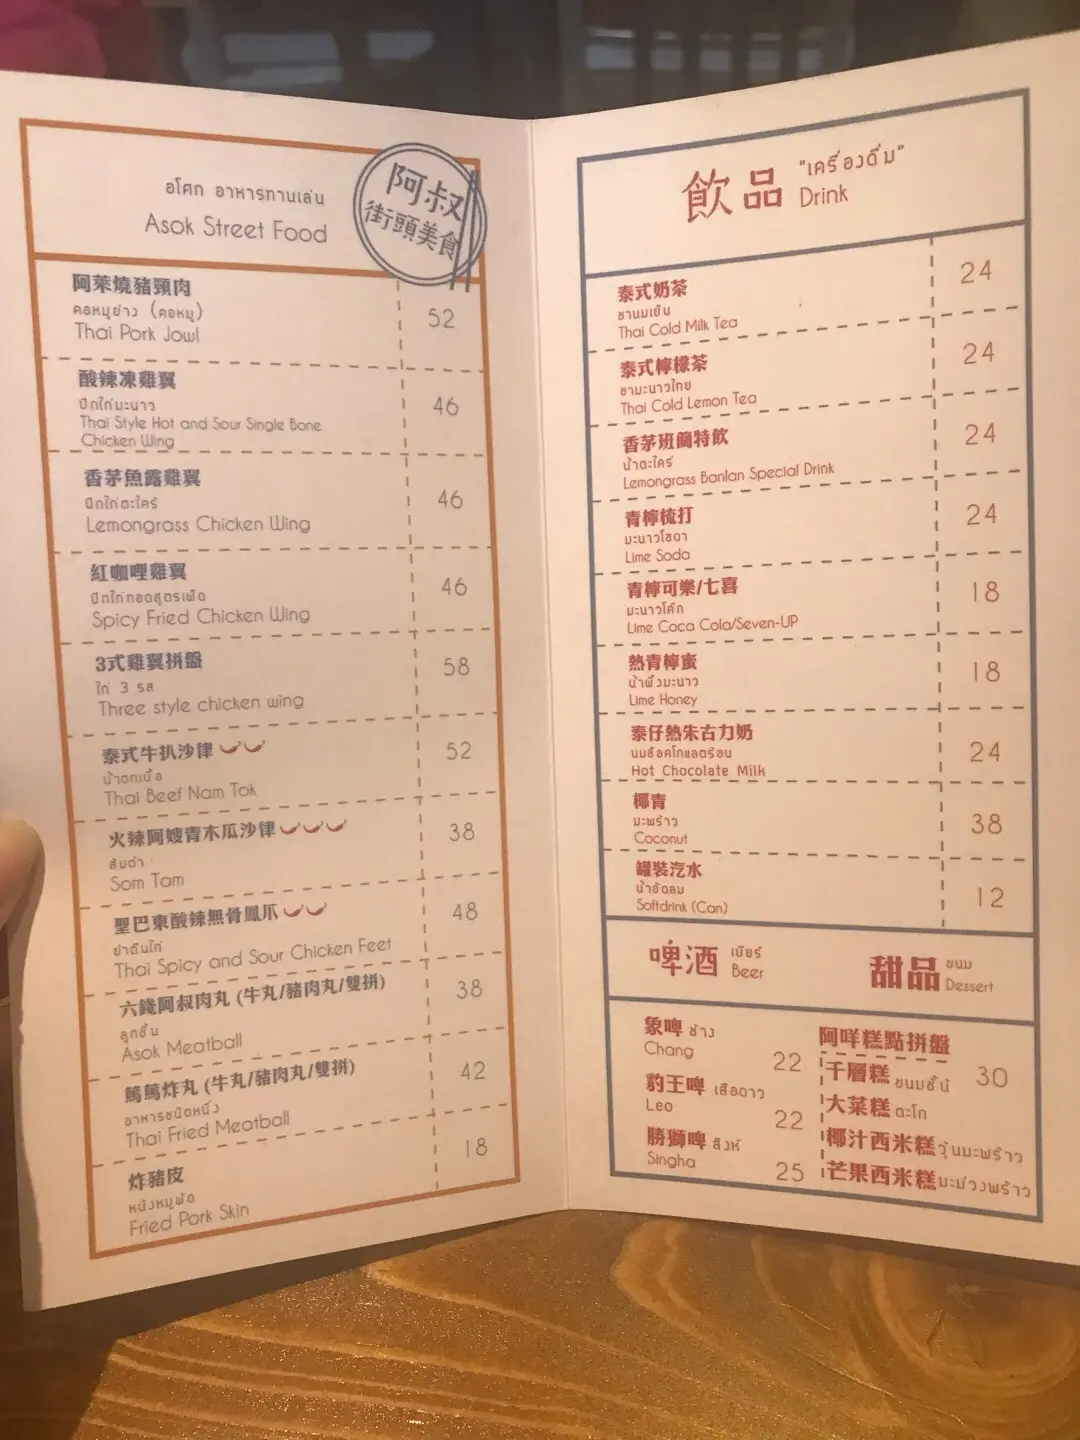 อโศก อาหารทานเล่น
Asok Street Food
阿叔
街頭美食
阿萊燒豬頸肉
คอหมูย่าง (คอหมู)
Thai Pork Jowl
52
酸辣凍雞翼
ปีกไก่มะนาว
Thai Style Hot and Sour Single Bone
Chicken Wing
46
香茅魚露雞翼
ปีกไก่ตะไคร้
Lemongrass Chicken Wing
46
紅咖喱雞翼
ปีกไก่ทอดสูตรเผ็ด
Spicy Fried Chicken Wing
46
3式雞翼拼盤
ไก่ 3 รส
Three style chicken wing
58
泰式牛扒沙律
น้ำตกเนื้อ
Thai Beef Nam Tok
52
火辣阿嫂青木瓜沙律
ส้มตำ
Som Tam
38
聖巴東酸辣無骨鳳爪
ยำตีนไก่
Thai Spicy and Sour Chicken Feet
48
六錢阿叔肉丸 (牛丸/豬肉丸/雙拼)
ลูกชิ้น
Asok Meatball
38
篤篤炸丸 (牛丸/豬肉丸/雙拼)
อาหารชนิดหนึ่ง
Thai Fried Meatball
42
炸豬皮
หนังหมูผัด
Fried Pork Skin
18
飲品 "เครื่องดื่ม"
Drink
泰式奶茶
ชานมเย็น
Thai Cold Milk Tea
24
泰式檸檬茶
ชามะนาวไทย
Thai Cold Lemon Tea
24
香茅班蘭特飲
น้ำตะไคร้
Lemongrass Banlan Special Drink
24
青檸梳打
มะนาวโซดา
Lime Soda
24
青檸可樂/七喜
มะนาวโค้ก
Lime Coca Cola/Seven-UP
18
熱青檸蜜
น้ำผึ้งมะนาว
Lime Honey
18
泰仔熱朱古力奶
นมช็อคโกแลตร้อน
Hot Chocolate Milk
24
椰青
มะพร้าว
Coconut
38
罐裝汽水
น้ำอัดลม
Softdrink (Can)
12
啤酒 เบียร์
Beer
甜品 ขนม
Dessert
象啤 ช้าง
Chang
22
豹王啤 เสือดาว
Leo
22
勝獅啤 สิงห์
Singha
25
阿咩糕點拼盤
30
千層糕 ขนมชั้น
大菜糕 ตะโก
椰汁西米糕 วุ้นมะพร้าว
芒果西米糕 มะม่วงพร้าว